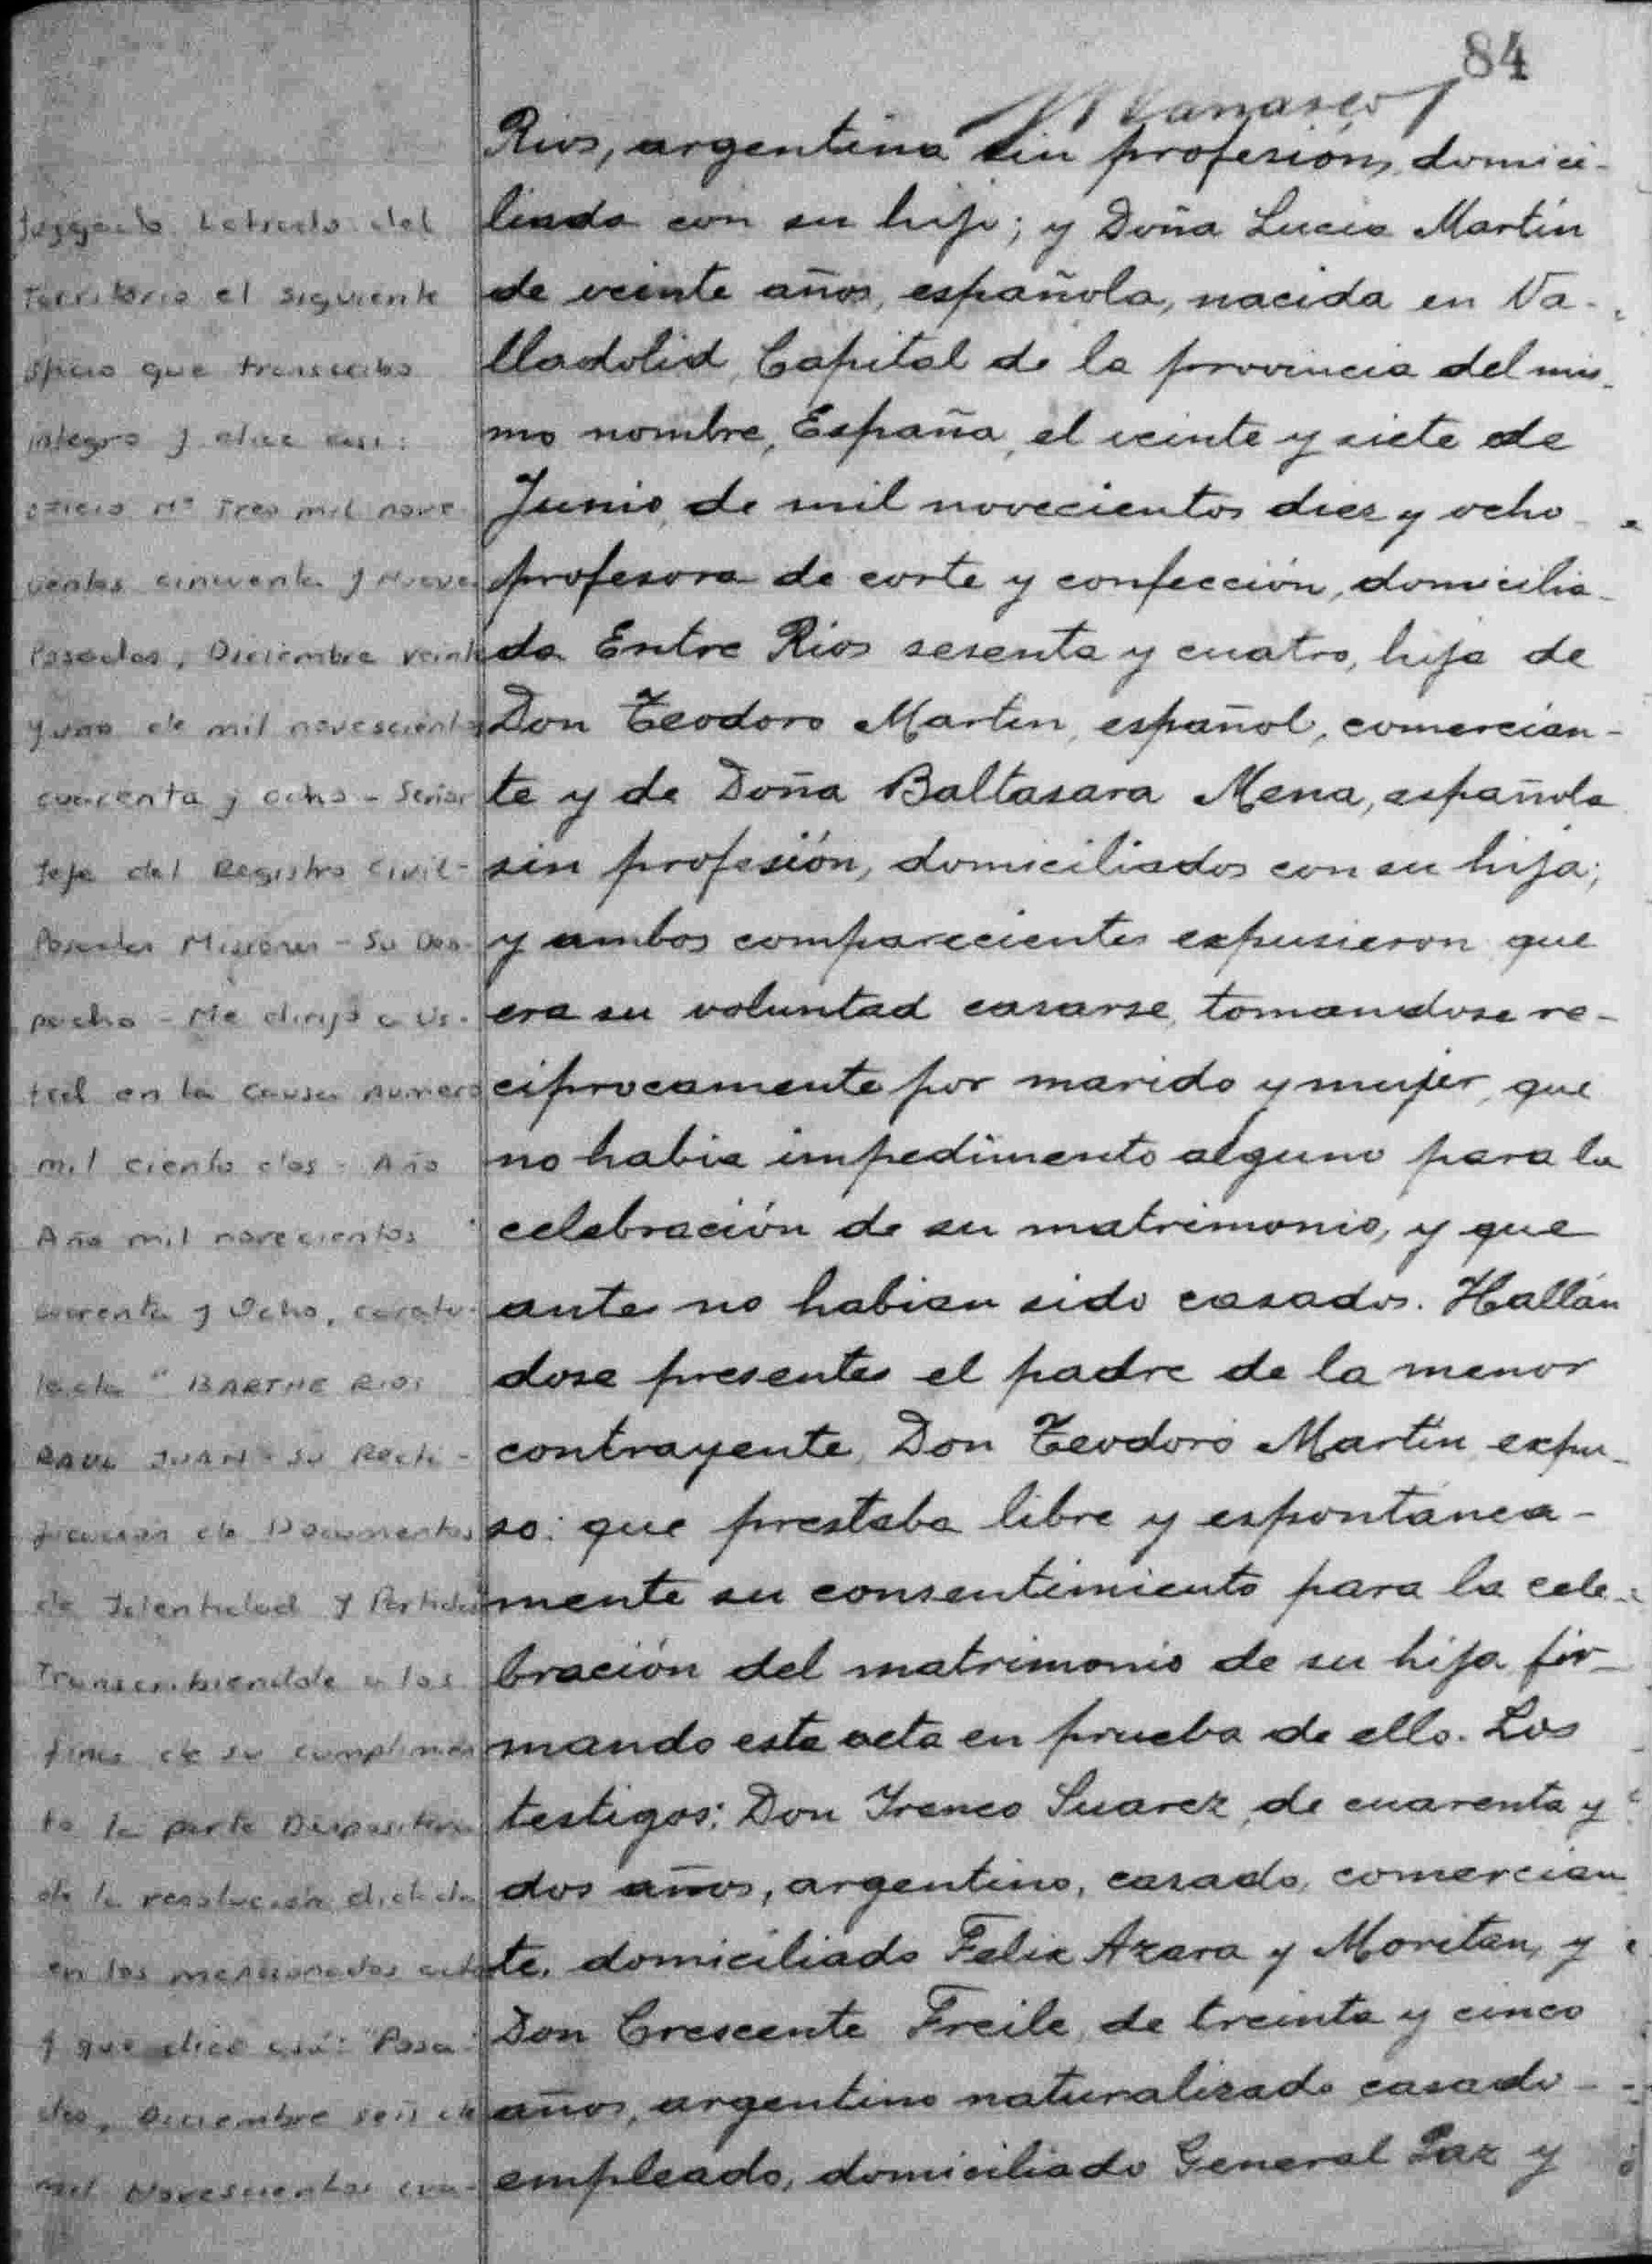 84
Rios, argentina sin profesión, domici-
liada con su hijo; y Doña Lucia Martín
de veinte años, española, nacida en Va-
lladolid, Capital de la provincia del mis-
mo nombre, España, el veinte y siete de
Junio de mil novecientos diez y ocho
profesora de corte y confección, domicilia-
da Entre Rios sesenta y cuatro, hija de
Don Teodoro Martin, español, comercian-
te y de Doña Baltasara Mena, española
sin profesión, domiciliados con su hija;
y ambos comparecientes expusieron que
era su voluntad casarse, tomandose re-
ciprocamente por marido y mujer, que
no habia impedimento alguno para la
celebración de su matrimonio, y que
antes no habian sido casados. Hallán
dose presentes el padre de la menor
contrayente, Don Teodoro Martin, expu-
so: que prestaba libre y espontánea-
mente su consentimiento para la cele-
bración del matrimonio de su hija fir-
mando esta acta en prueba de ello. Los
testigos: Don Ireneo Suarez, de cuarenta y
dos años, argentino, casado, comercian
te, domiciliado Felix Azara y Moritan, y
Don Crescente Freile, de treinta y cinco
años, argentino naturalizado casado-
empleado, domiciliado General Paz y
Juzgado Letrado del
Territorio el siguiente
oficio que transcribo
integro y dice asi:
oficio Nº Tres mil nove-
cientos cincuenta y Nueve
Posadas, Diciembre veinte
y uno de mil novescientos
cuarenta y ocho - Señor
Jefe del Registro Civil-
Posadas Misiones - Su Des-
pacho - Me dirijo a Us-
ted en la causa numero
mil ciento dos - Año
Año mil novecientos
cuarenta y Ocho, caratu-
lada "BARTHE RIOS
RAUL JUAN - Su Recti-
ficación de Documentos
de Identidad y Partidas
Transcribiendole a los
fines de su cumplimien
to la parte Dispositiva
de la resolución dictada
en los mencionados autos
y que dice así: "Posa-
das, Diciembre seis de
mil Novescientos cua-